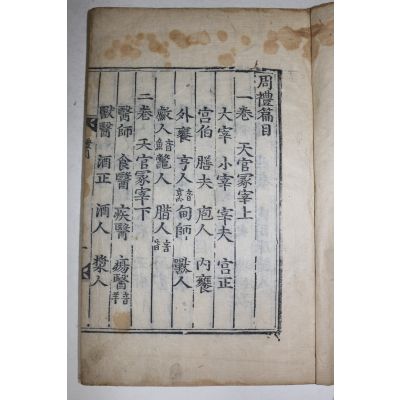 周禮篇目
一卷 天官冢宰上
大宰 小宰 宰夫 宮正
宮伯 膳夫 庖人 內饔
外饔 亨人 甸師 獸人
䱷人 鼈人 腊人
二卷 天官冢宰下
醫師 食醫 疾醫 瘍醫
獸醫 酒正 酒人 漿人